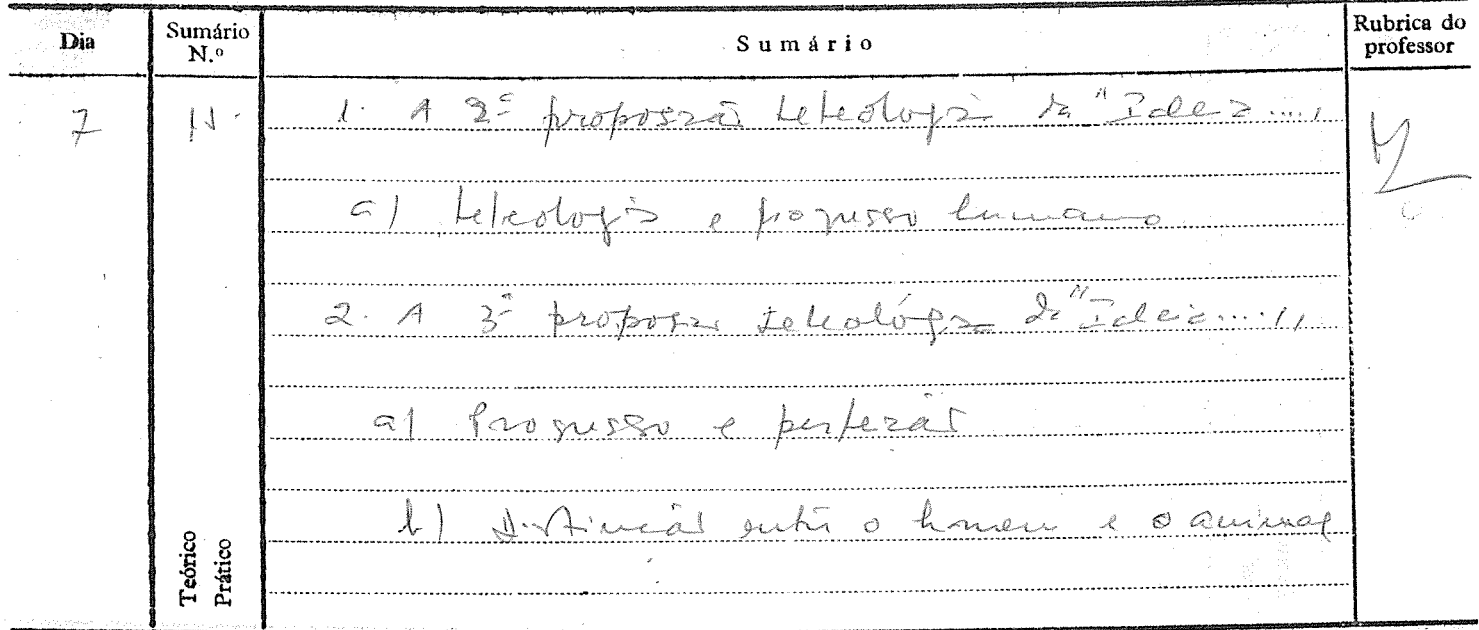 Dia
Sumário N.º
Sumário
Rubrica do professor
7
1. A 2ª proposição teleológica da "Ideia...."
a) teleologia e progresso humano
2. A 3ª proposição teleológica da "Ideia....."
a) Progresso e perfeição
b) Distinção entre o homem e o animal
Teórico
Prático